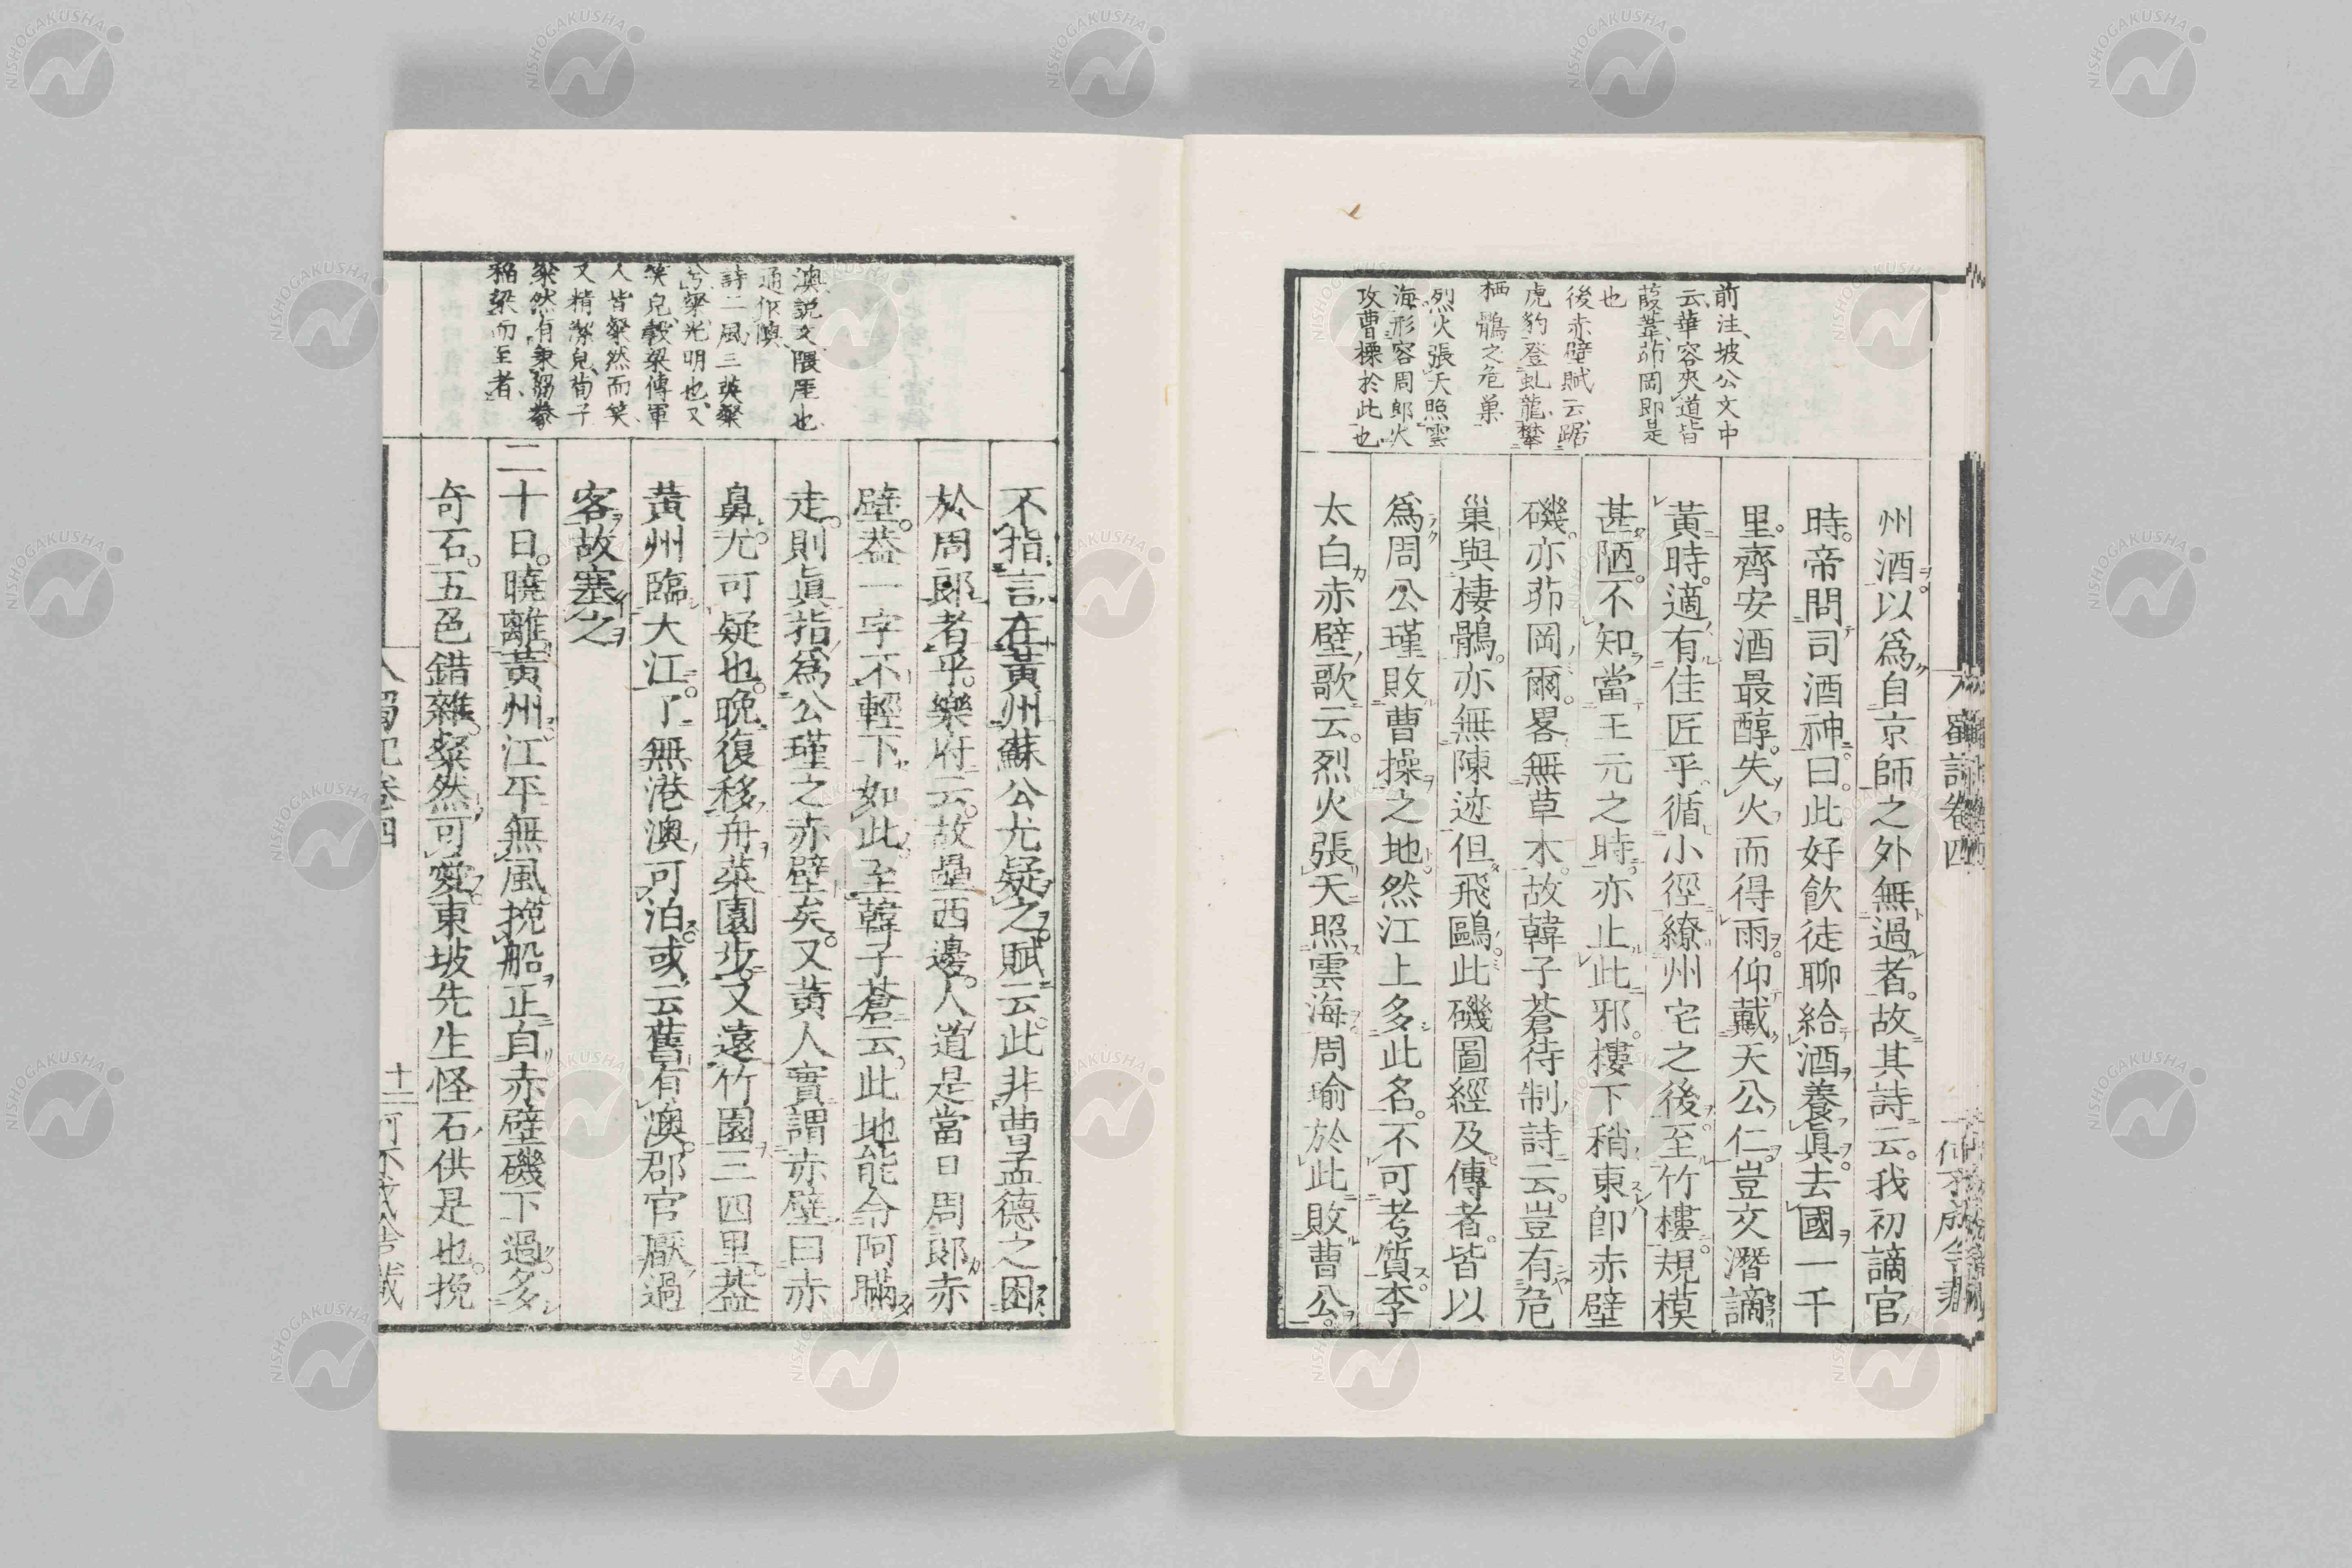 前注、坡公文中
云、華容夾道皆
葭葦茆岡即是
也
後赤壁賦云、踞
虎豹登虬龍、攀
栖鶻之危巢
烈火張天照雲
海、形容周郎火
攻曹操於此也
州酒以爲自京師之外無過者。故其詩云。我初謫官
時。帝問司酒神。曰。此好飲徒聊給酒養眞。去國一千
里。齊安酒最醇。失火而得雨。仰戴天公仁。豈文潛謫
黃時。適有佳匠乎。循小徑繚州宅之後。至竹樓。規模
甚陋。不知當王元之時。亦止此邪。樓下稍東即赤壁
磯。亦茆岡爾。畧無草木。故韓子蒼待制詩云。豈有危
巢與棲鶻。亦無陳迹但飛鷗。此磯圖經及傳者。皆以
爲周公瑾敗曹操之地。然江上多此名。不可考質。李
太白赤壁歌云。烈火張天照雲海。周瑜於此敗曹公。
澳説文、隈厓也、
通作隩
詩二風三英粲
兮、粲光明也、又
笑皃、穀梁傳軍
人皆粲然而笑、
又精潔皃、荀子
粲然有秉芻豢
稻梁而至者、
不指言在黃州。蘇公尤疑之。賦云。此非曹孟德之困
於周郎者乎。樂府云。故壘西邊。人道是當日周郎赤
壁。葢一字不輕下如此。至韓子蒼云。此地能令阿瞞
走。則眞指爲公瑾之赤壁矣。又黃人實謂赤壁曰赤
鼻。尤可疑也。晩復移舟菜園步。又遠竹園三四里。葢
黃州臨大江。了無港澳可泊。或云舊有澳。郡官厭過
客。故塞之
二十日。曉離黃州。江平無風。挽船正自赤壁磯下過。多
奇石。五色錯雜。粲然可愛。東坡先生怪石供是也。挽
十二